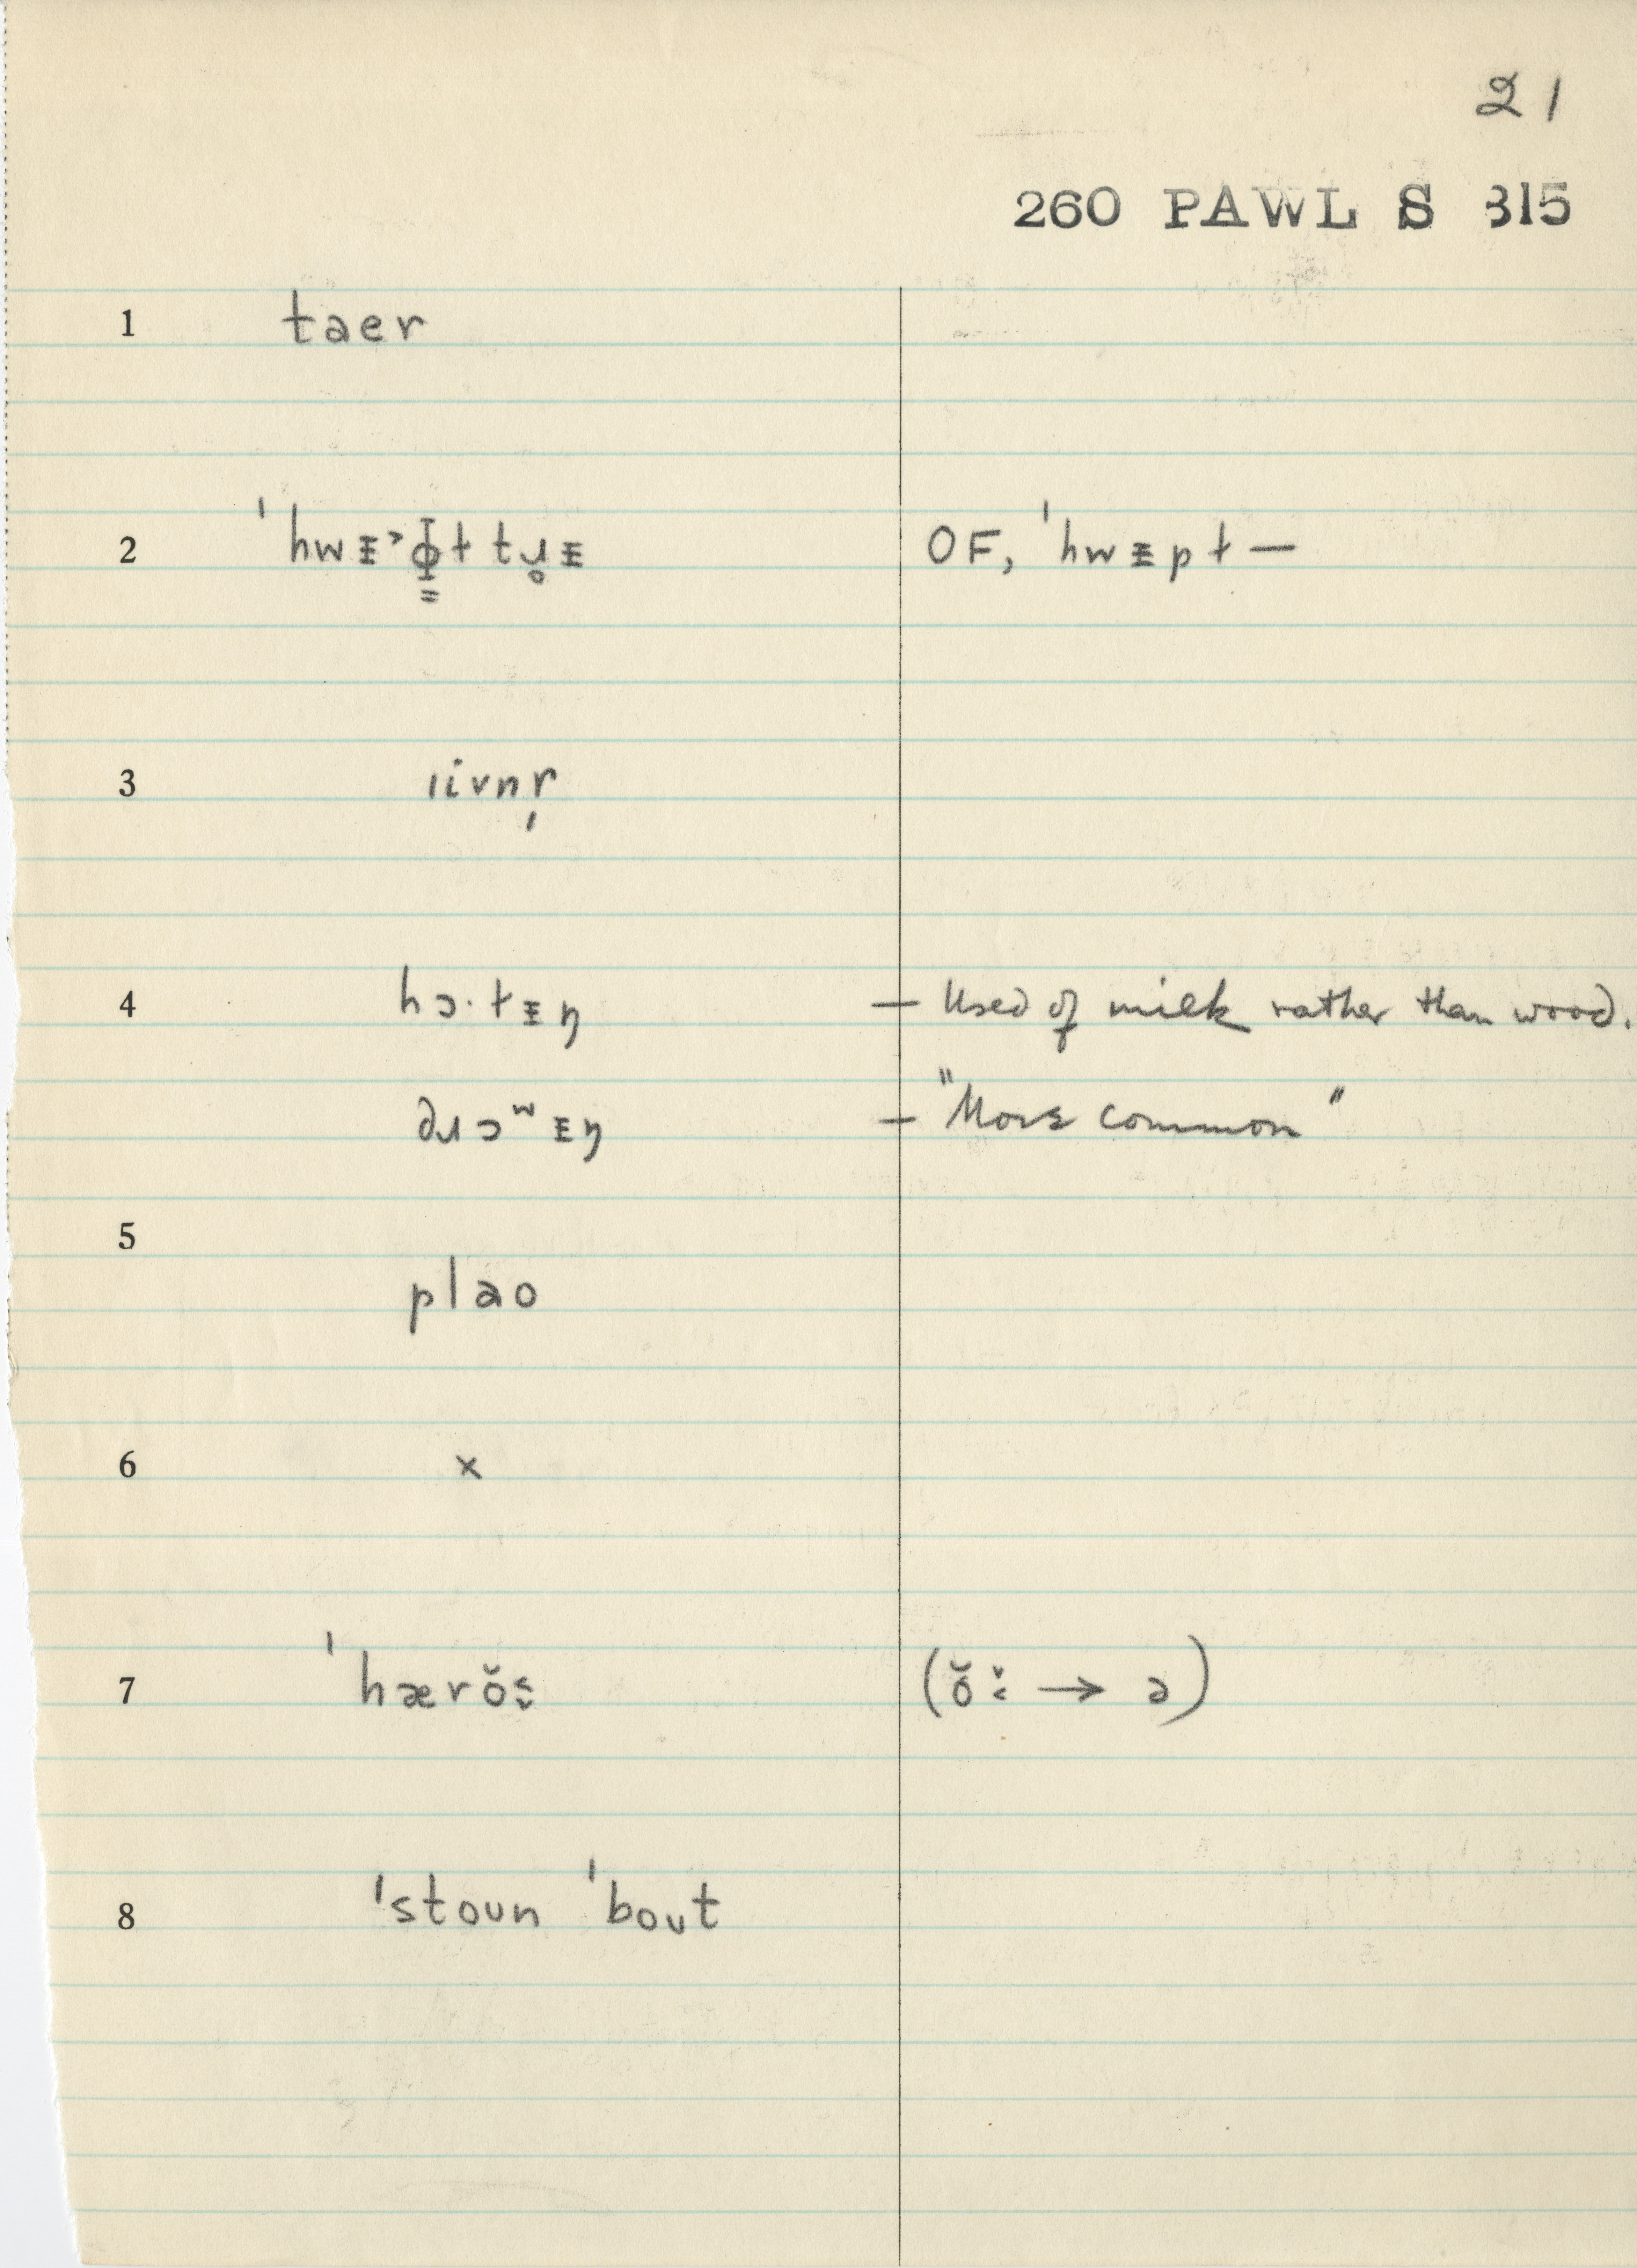 21
260 PAWL S 315
1 taer
2 ˈhwᵻ˃ɸt tɹ̥ᵻ OF, ˈhwᵻpt —
3 ıivnr̩
4 hɔ·tᵻŋ — Used of milk rather than wood.
dɹɔʷᵻŋ — "More common"
5
plao
6 x
7 ˈhærŏ (ŏ → ə)
8 ˈstoun ˈbout